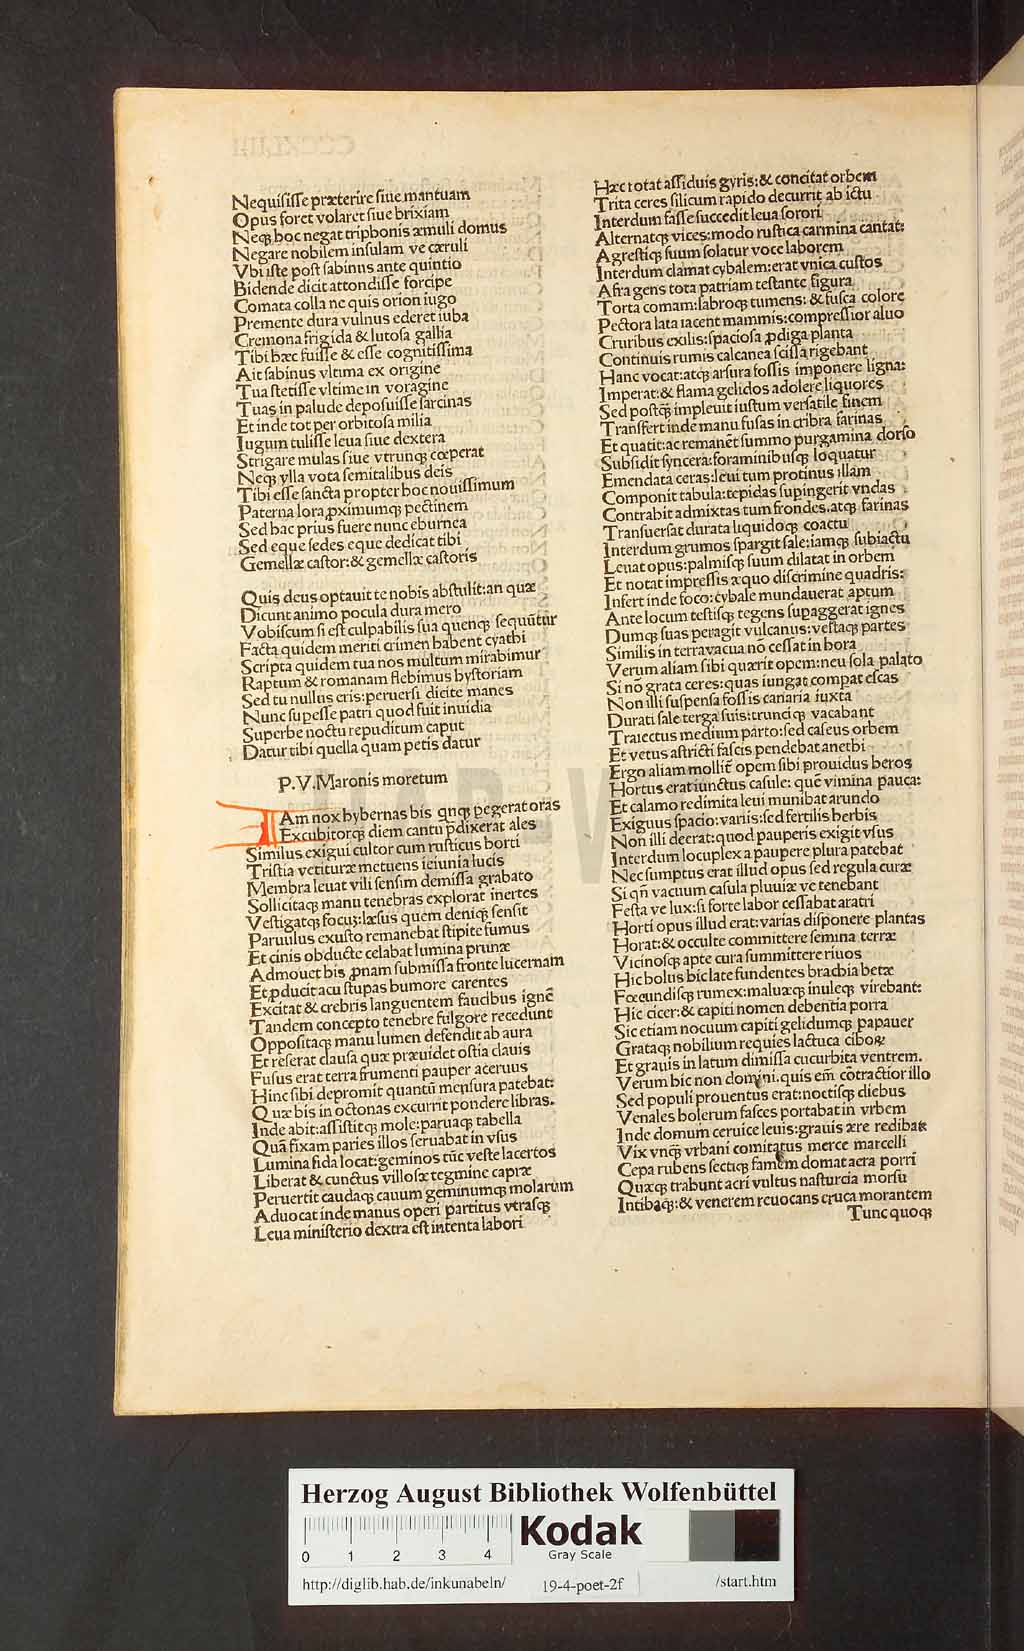 Nequisisse præterire siue mantuam
Opus foret volaret siue brixiam
Neqꝫ hoc negat triphonis æmuli domus
Negare nobilem insulam ve cæruli
Vbi iste post sabinus ante quintio
Bidende dicit attondisse forcipe
Comata colla ne quis orion iugo
Premente dura vulnus ederet iuba
Cremona frigida & lutosa gallia
Tibi hæc fuisse & esse cognitissima
Ait sabinus vltima ex origine
Tua stetisse vltime in voragine
Tuas in palude deposuisse sarcinas
Et inde tot per orbitosa milia
Iugum tulisse leua siue dextera
Strigare mulas siue vtrunqꝫ cœperat
Neqꝫ ylla vota semitalibus deis
Tibi esse sancta propter hoc nouissimum
Paterna lora ꝓximumqꝫ pectinem
Sed hac prius fuere nunc eburnea
Sed eque sedes eque dedicat tibi
Gemellæ castor: & gemellæ castoris
Quis deus optauit te nobis abstulit: an quæ
Dicunt animo pocula dura mero
Vobiscum si est culpabilis sua quenqꝫ sequūtur
Facta quidem meriti crimen habent cyathi
Scripta quidem tua nos multum mirabimur
Raptum & romanam flebimus hystoriam
Sed tu nullus eris: peruersi dicite manes
Nunc supesse patri quod fuit inuidia
Superbe noctu repuditum caput
Datur tibi quella quam petis datur
P.V.Maronis moretum
IAm nox hybernas bis qnqꝫ pegerat oras
Excubitorqꝫ diem cantu p̄dixerat ales
Similus exigui cultor cum rusticus horti
Tristia vetituræ metuens ieiunia lucis
Membra leuat vili sensim demissa grabato
Sollicitaqꝫ manu tenebras explorat inertes
Vestigatqꝫ focuꝫ: læsus quem deniqꝫ sensit
Paruulus exusto remanebat stipite fumus
Et cinis obducte celabat lumina prunæ
Admouet bis ꝓnam submissa fronte lucernam
Et ꝓducit acu stupas humore carentes
Excitat & crebris languentem faucibus ignē
Tandem concepto tenebre fulgore recedunt
Oppositaqꝫ manu lumen defendit ab aura
Et reserat clausa quæ præuidet ostia clauis
Fusus erat terra frumenti pauper aceruus
Hinc sibi depromit quantū mensura patebat:
Quæ bis in octonas excurrit pondere libras.
Inde abit: assistitqꝫ mole: paruaqꝫ tabella
Quā fixam paries illos seruabat in vsus
Lumina fida locat: geminos tūc veste lacertos
Liberat & cunctus villosæ tegmine capræ
Peruertit caudaqꝫ cauum geminumqꝫ molarum
Aduocat inde manus operi partitus vtrasqꝫ
Leua ministerio dextra est intenta labori
Hæc rotat assiduis gyris: & concitat orbem
Trita ceres silicum rapido decurrit ab ictu
Interdum fasse succedit leua sorori
Alternatqꝫ vices: modo rustica carmina cantat:
Agrestiqꝫ suum solatur voce laborem
Interdum clamat cybalem: erat vnica custos
Afra gens tota patriam testante figura
Torta comam: labroqꝫ tumens: & fusca colore
Pectora lata iacent mammis: compressior aluo
Cruribus exilis: spaciosa ꝓdiga planta
Continuis rumis calcanea scissa rigebant
Hanc vocat: atqꝫ arsura fossis imponere ligna:
Imperat: & flama gelidos adolere liquores
Sed postqꝫ impleuit iustum versatile finem
Transfert inde manu fusas in cribra farinas
Et quatit: ac remanēt summo purgamina dorso
Subsidit syncera: foraminibusqꝫ loquatur
Emendata ceras: leui tum protinus illam
Componit tabula: tepidas supingerit vndas
Contrahit admixtas tum frondes. atqꝫ farinas
Transuersat durata liquidoqꝫ coactu
Interdum grumos spargit sale: iamqꝫ subiactu
Leuat opus: palmisqꝫ suum dilatat in orbem
Et notat impressis æquo discrimine quadris:
Infert inde foco: cybale mundauerat aptum
Ante locum testisqꝫ tegens supaggerat ignes
Dumqꝫ suas peragit vulcanus: vestaqꝫ partes
Similis in terra vacua nō cessat in hora
Verum aliam sibi quærit opem: neu sola palato
Si nō grata ceres: quas iungat compat escas
Non illi suspensa fossis canaria iuxta
Durati sale terga suis: trunciqꝫ vacabant
Traiectus medium parto: sed caseus orbem
Et vetus astricti fascis pendebat anethi
Ergo aliam mollit̄ opem sibi prouidus heros
Hortus erat iunctus casule: quē vimina pauca:
Et calamo redimita leui munibat arundo
Exiguus spacio: variis: sed fertilis herbis
Non illi deerat: quod pauperis exigit vsus
Interdum locuplex a paupere plura patebat
Nec sumptus erat illud opus sed regula curæ
Si qn̄ vacuum casula pluuiæ ve tenebant
Festa ve lux: si forte labor cessabat aratri
Horti opus illud erat: varias disponere plantas
Horat: & occulte committere semina terræ
Vicinosqꝫ apte cura summittere riuos
Hic holus hic late fundentes brachia betæ
Fœcundisqꝫ rumex: maluæqꝫ inuleqꝫ virebant:
Hic cicer: & capiti nomen debentia porra
Sic etiam nocuum capiti gelidumqꝫ papauer
Grataqꝫ nobilium requies lactuca ciboꝝ
Et grauis in latum dimissa cucurbita ventrem.
Verum hic non domini. quis em̄ cōtractior illo
Sed populi prouentus erat: noctisqꝫ diebus
Venales holerum fasces portabat in vrbem
Inde domum ceruice leuis: grauis ære redibat
Vix vnqꝫ vrbani comitatus merce marcelli
Cepa rubens sectiqꝫ famem domat aera porri
Quæqꝫ trahunt acri vultus nasturcia morsu
Intibaqꝫ: & venerem reuocans eruca morantem
Tunc quoqꝫ
Herzog August Bibliothek Wolfenbüttel
0 1 2 3 4
Kodak
Gray Scale
http://diglib.hab.de/inkunabeln/ 19-4-poet-2f /start.htm